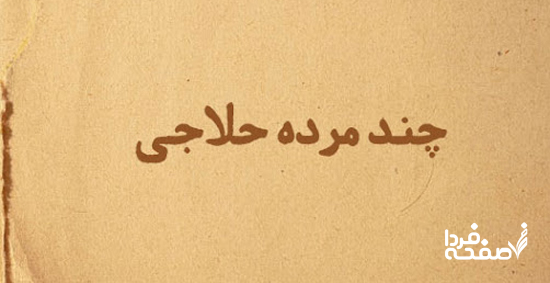 چند مرده حلاجی
فردا
صفحه